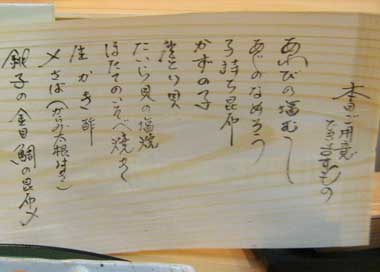 本日ご用意
できますもの
あわびの塩むし
あじのなめろう
子持ち昆布
かずの子
生とり貝
たいら貝の塩焼
ほたてのいそべ焼き
生かき酢
〆さば(からみ大根付き)
銚子の金目鯛の昆布〆